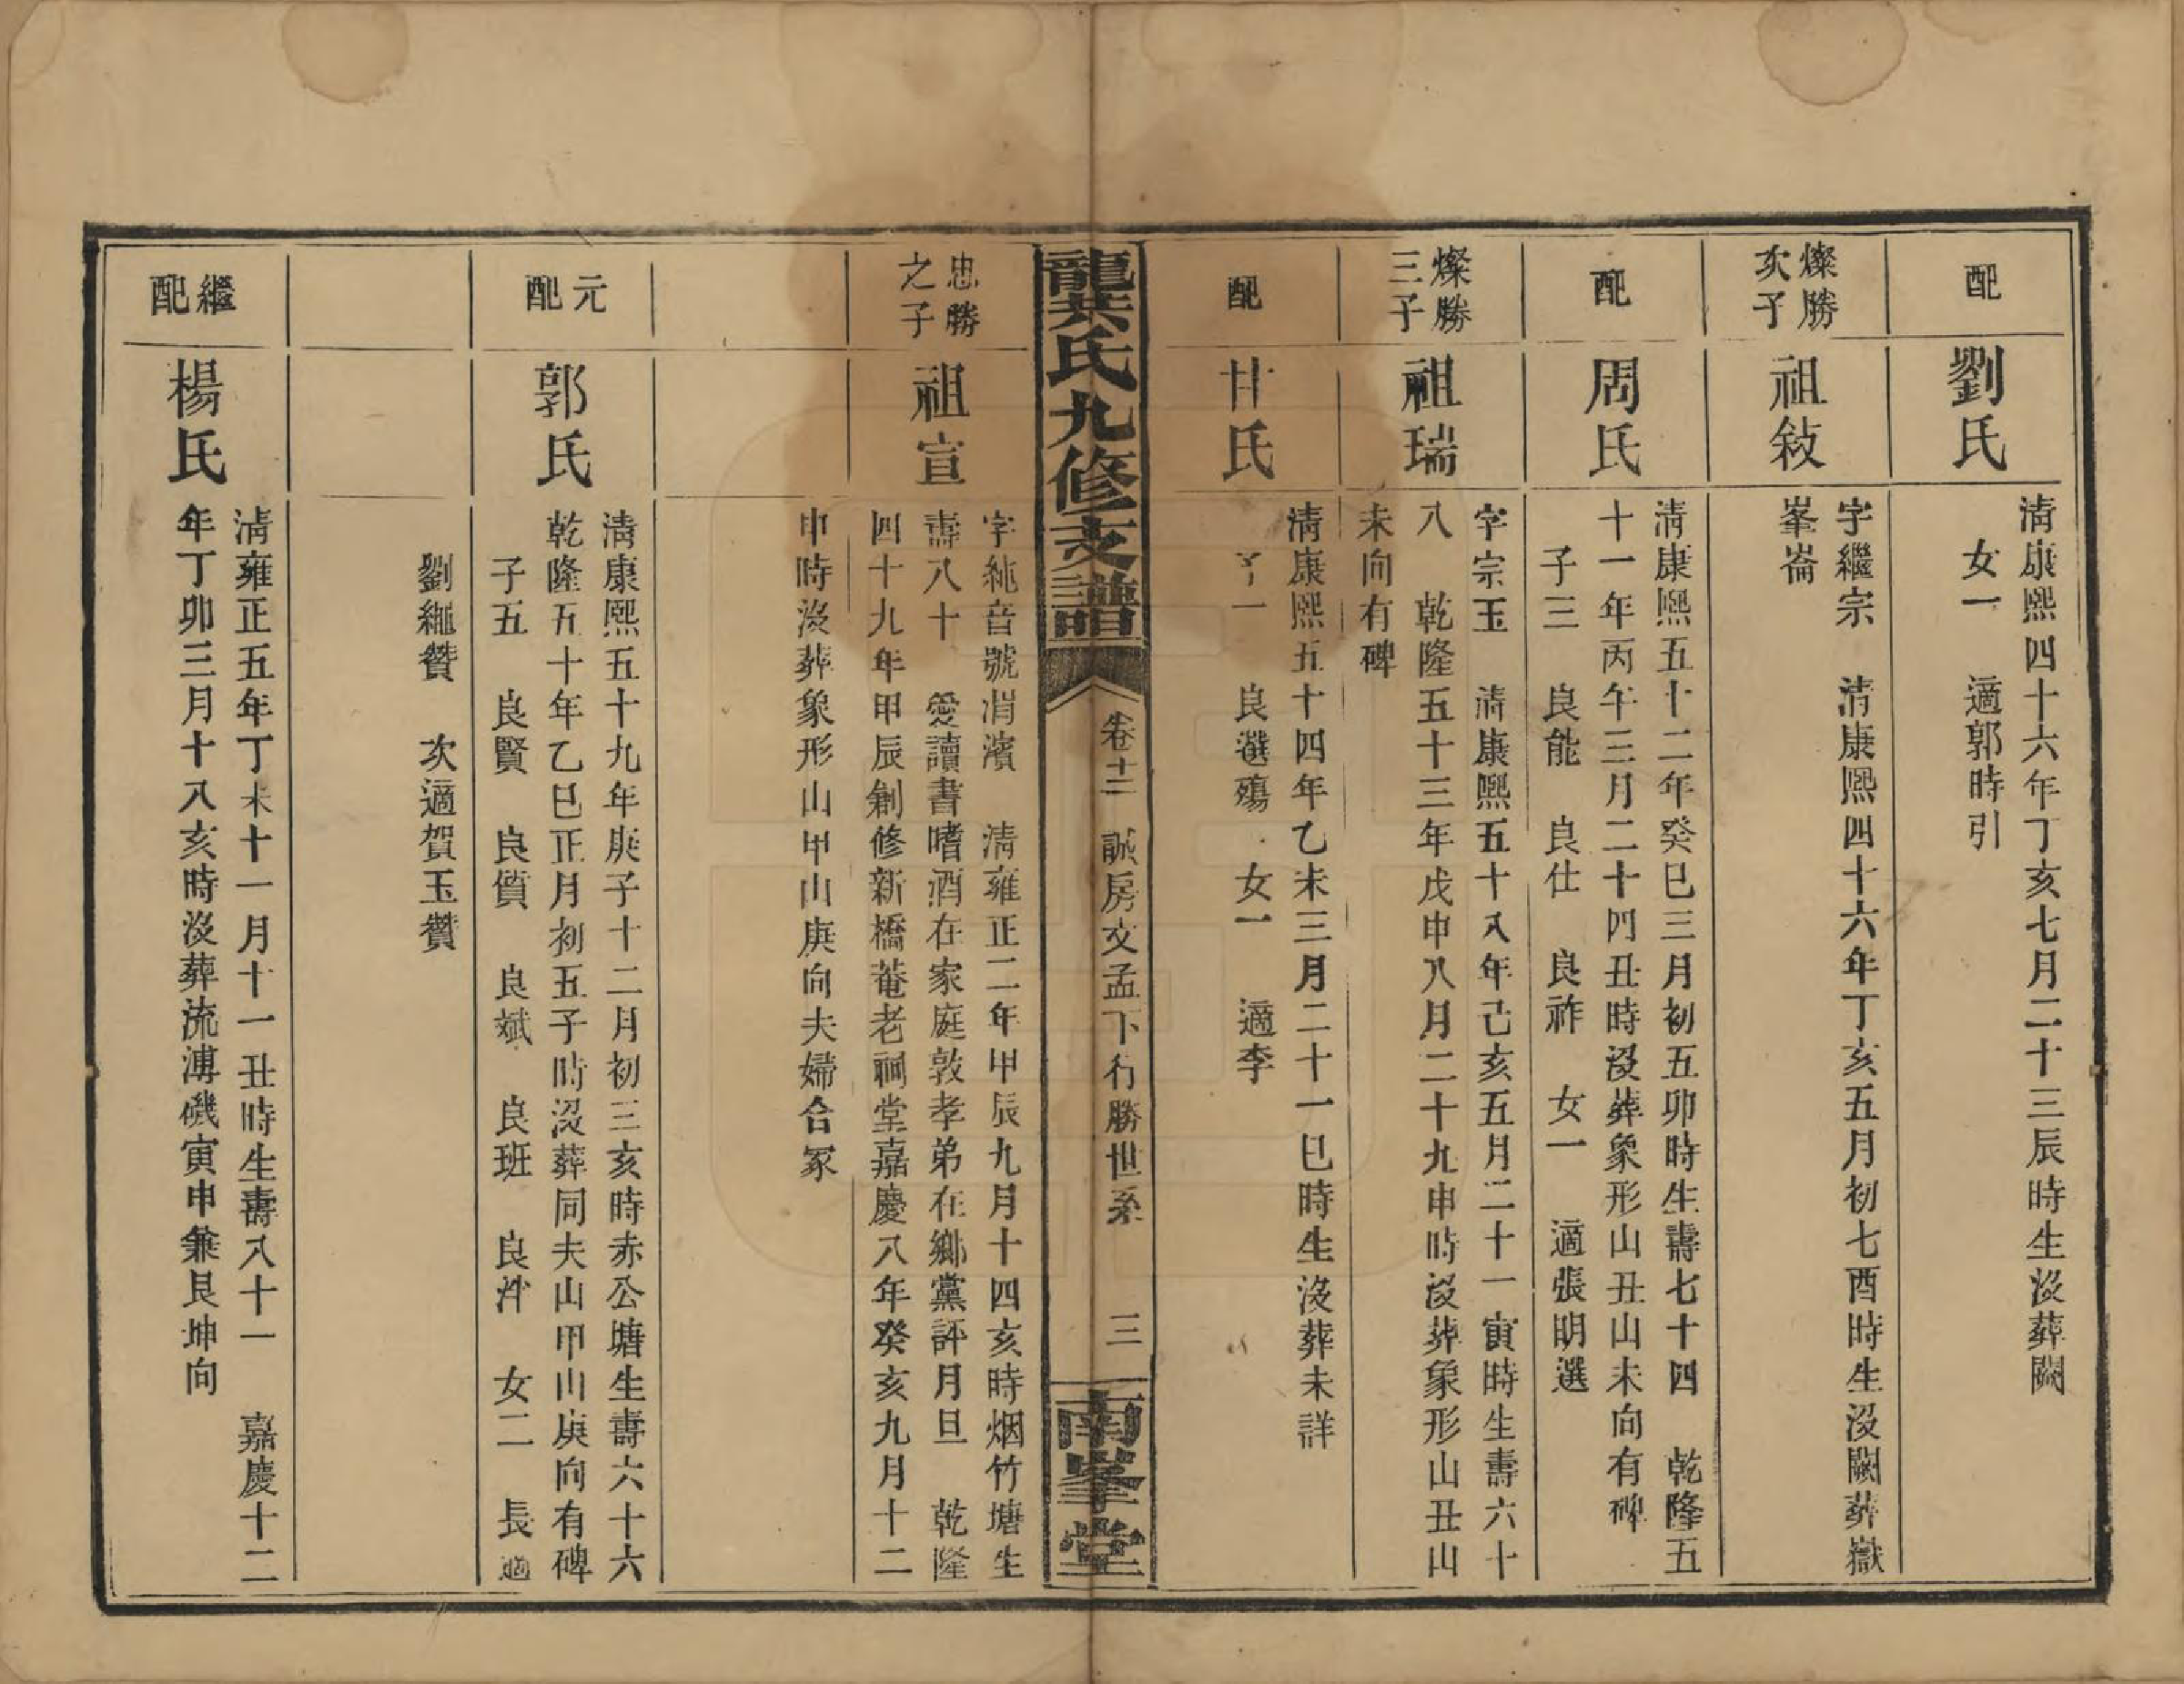 配
劉氏
清康熙四十六年丁亥七月二十三辰時生沒葬闕
女一　適郭時引
燦勝
次子
祖敍
字繼宗　清康熙四十六年丁亥五月初七酉時生沒闕葬嶽
峯崙
配
周氏
清康熙五十二年癸巳三月初五卯時生壽七十四　乾隆五
十一年丙午三月二十四丑時沒葬象形山丑山未向有碑
子三　良能　良仕　良祚　女一　適張明選
燦勝
三子
祖瑞
字宗玉　清康熙五十八年己亥五月二十一寅時生壽六十
八　乾隆五十三年戊申八月二十九申時沒葬象形山丑山
未向有碑
配
甘氏
清康熙五十四年乙未三月二十一巳時生沒葬未詳
子一　良選殤　女一　適李
龍 氏九修支譜
卷十二　誠房文孟下行勝世系　三
南峯堂
忠勝
之子
祖宣
字純音號渭濱　清雍正二年甲辰九月十四亥時烟竹塘生
壽八十　愛讀書嗜酒在家庭敦孝弟在鄉黨評月旦　乾隆
四十九年甲辰剏修新橋菴老祠堂嘉慶八年癸亥九月十二
申時沒葬象形山甲山庚向夫婦合冢
元
配
郭氏
清康熙五十九年庚子十二月初三亥時赤公塘生壽六十六
乾隆五十年乙巳正月初五子時沒葬同夫山甲山庚向有碑
子五　良賢　良質　良斌　良班　良沖　女二　長適
劉繩贊　次適賀玉贊
繼
配
楊氏
清雍正五年丁未十一月十一丑時生壽八十一　嘉慶十二
年丁卯三月十八亥時沒葬流溥磯寅申兼艮坤向